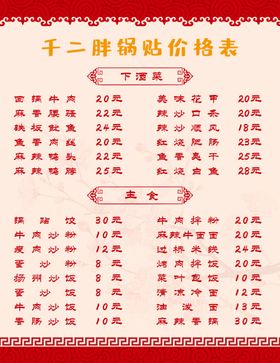 千二胖锅贴价格表
下酒菜
面锅牛肉 20元 美味花甲 20元
麻香腰骚 22元 辣炒口条 20元
铁板鱿鱼 24元 辣炒顺风 18元
鱼香肉丝 20元 红烧肥肠 23元
麻辣鸭头 20元 鱼香裹干 25元
麻辣鸭脖 25元 红烧白鱼 28元
主食
锅贴饺 30元 牛肉拌粉 20元
牛肉炒粉 10元 麻辣牛面 20元
瘦肉炒粉 12元 过桥米线 24元
蛋炒粉 8元 烤肉拌粉 20元
扬州炒饭 8元 菜叶包饭 10元
蛋炒饭 8元 清凉冷面 12元
牛肉炒饭 10元 油泼面 13元
香肠炒饭 10元 麻辣香锅 30元